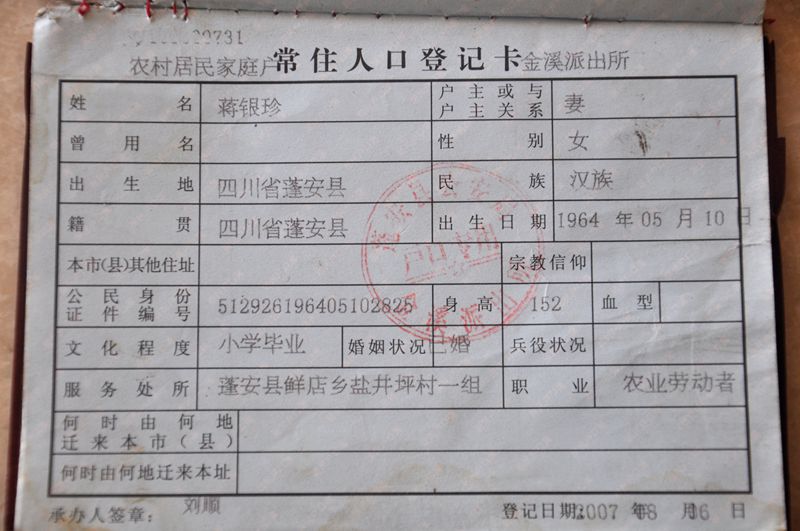 农村居民家庭户 常住人口登记卡 金溪派出所
姓名 蒋银珍 户主或与户主关系 妻
曾用名 性别 女
出生地 四川省蓬安县 民族 汉族
籍贯 四川省蓬安县 出生日期 1964 年 05 月 10 日
本市(县)其他住址 宗教信仰
公民身份证件编号 512926196405102825 身高 152 血型
文化程度 小学毕业 婚姻状况 已婚 兵役状况
服务处所 蓬安县鲜店乡盐井坪村一组 职业 农业劳动者
何时由何地迁来本市(县)
何时由何地迁来本址
承办人签章: 刘顺 登记日期: 2007 年 08 月 16 日
户口专用